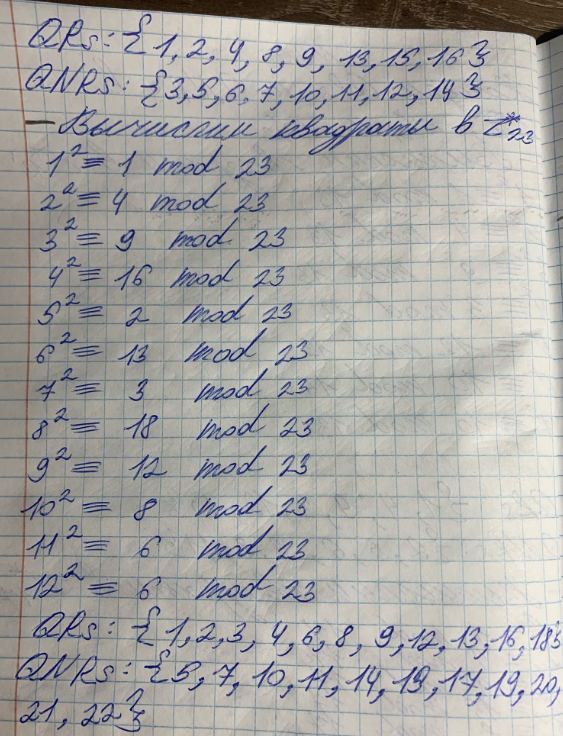 QRs: {1, 2, 4, 8, 9, 13, 15, 16}
QNRs: {3, 5, 6, 7, 10, 11, 12, 14}
- Вычислил квадраты в Z*₂₃
1² ≡ 1 mod 23
2² ≡ 4 mod 23
3² ≡ 9 mod 23
4² ≡ 16 mod 23
5² ≡ 2 mod 23
6² ≡ 13 mod 23
7² ≡ 3 mod 23
8² ≡ 18 mod 23
9² ≡ 12 mod 23
10² ≡ 8 mod 23
11² ≡ 6 mod 23
12² ≡ 6 mod 23
QRs: {1, 2, 3, 4, 6, 8, 9, 12, 13, 16, 18}
QNRs: {5, 7, 10, 11, 14, 19, 17, 19, 20,
21, 22}